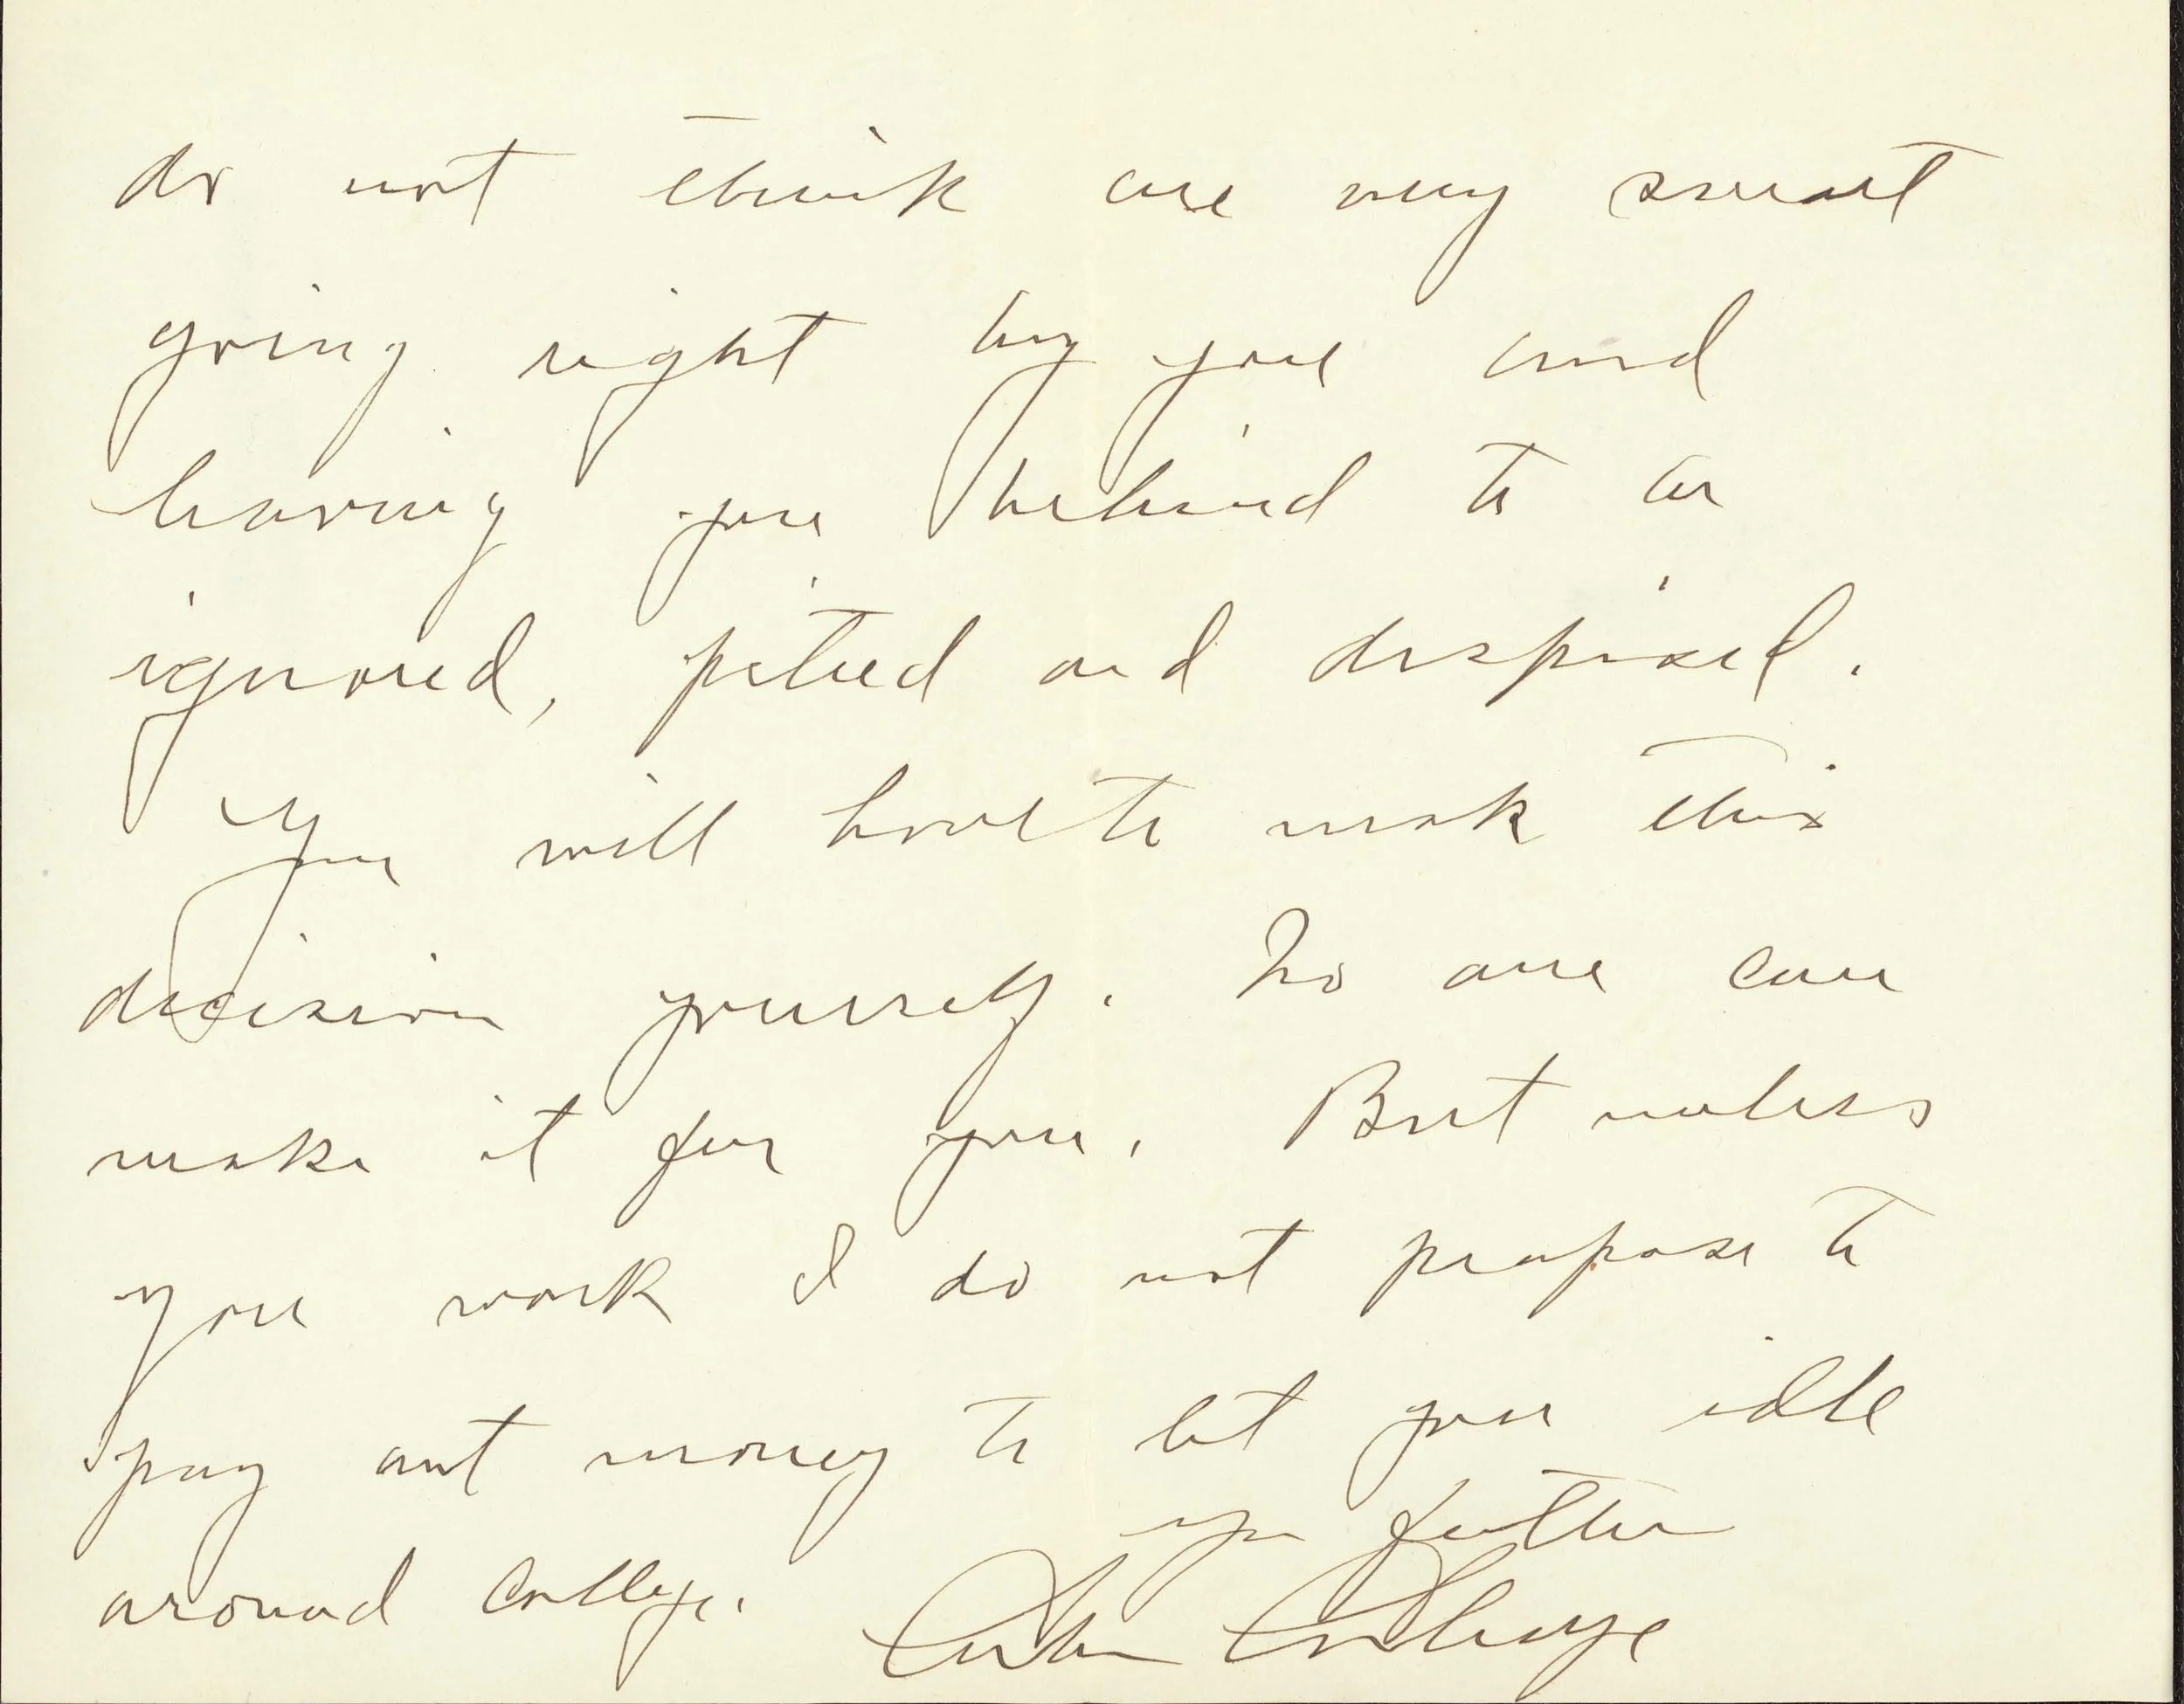 do not think are very smart
going right by you and
leaving you behind to be
ignored, pitied and despised.
You will have to make this
decision yourself. No one can
make it for you. But unless
you work I do not propose to
pay out money to let you idle
around college.
Your father
Calvin Coolidge